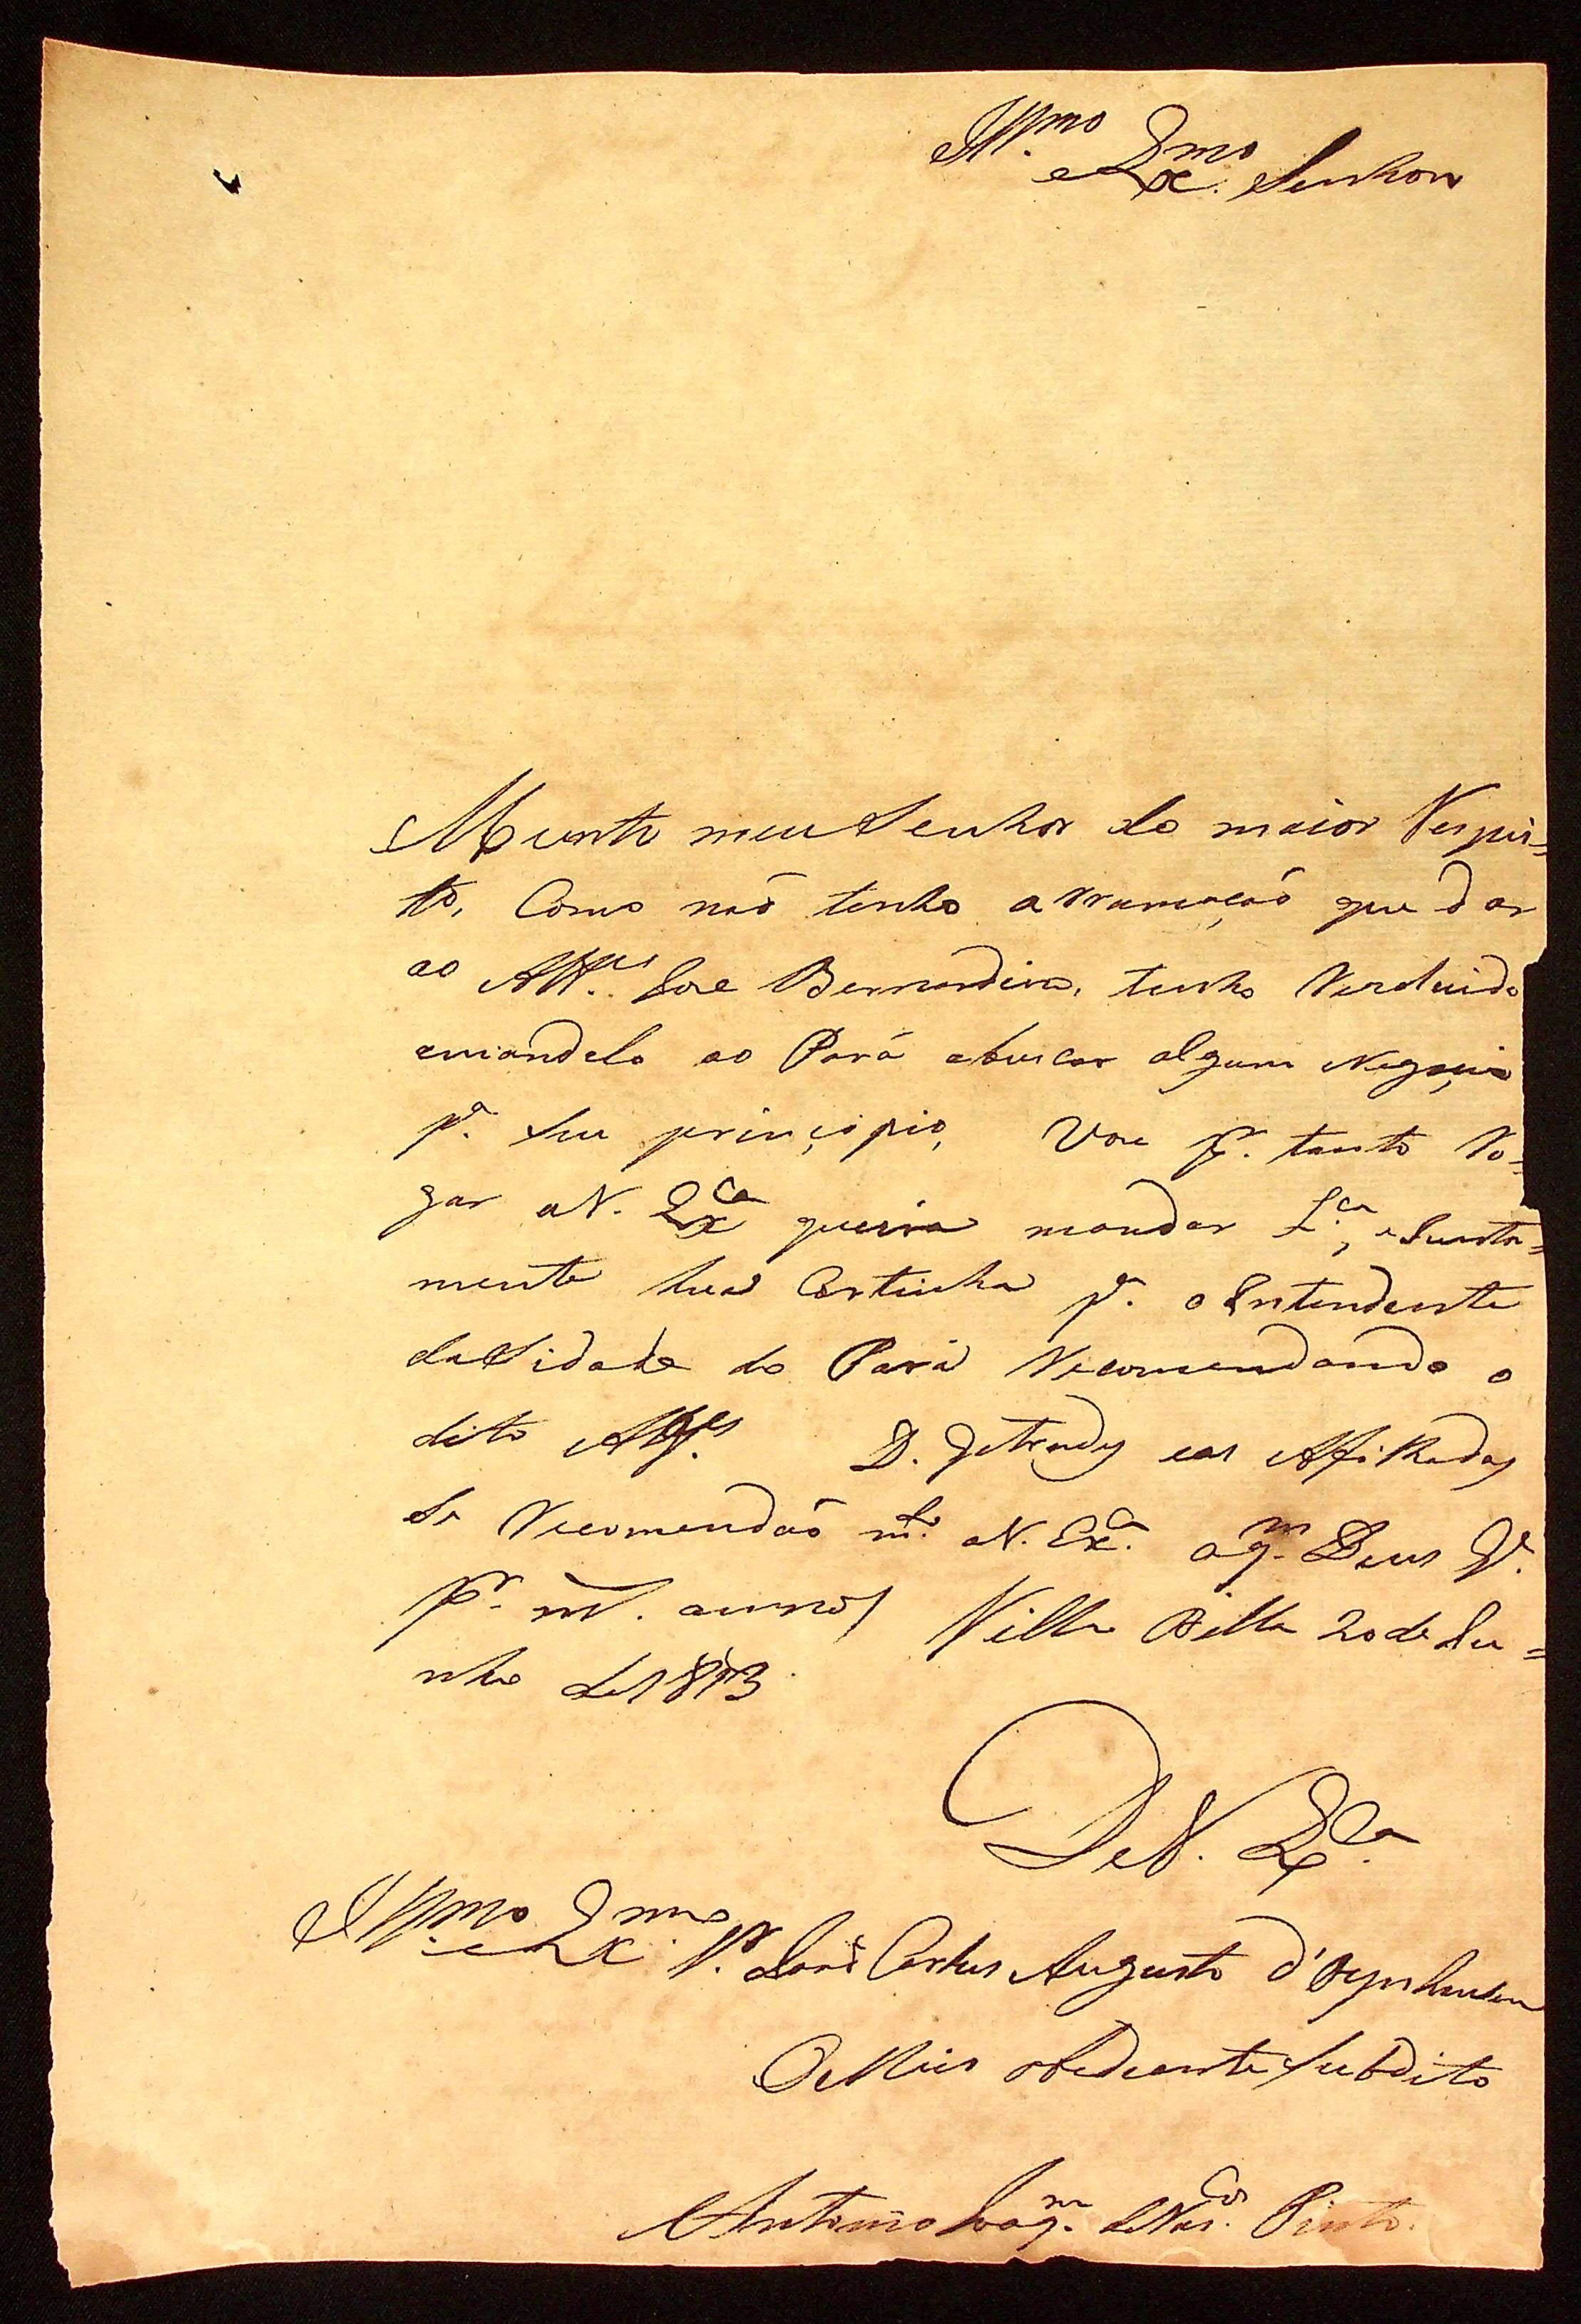 Ill.mo
e Ex.mo Senhor
Munto meu Senhor do maior Respei=
to, Como não tenho arrumação que dar
ao Alf.es Joze Bernardino, tenho Rezoluido
emandalo ao Pará abuscar algum Negocio
p.a seu principio, Vou p.r tanto Ro=
gar aV. Ex.ca queira mandar L.ca, eJunta=
mente hua Cartinha p.a oIntendente
daSidade do Pará Recomendando o
dito Alf.es D. Getrudes eas Afilhadas
Se Recomendão m.to aV. Ex.ca aq.m Deus G.e
p.r m.s annos Villa Bella 20 de Ju=
nho de1813
DeV. Ex.ca
Ill.mo e Ex.mo S.r João Carlos Augusto d'Oeynhausen
OMais obediente Subdito
Antonio Joaq.m Pinto.